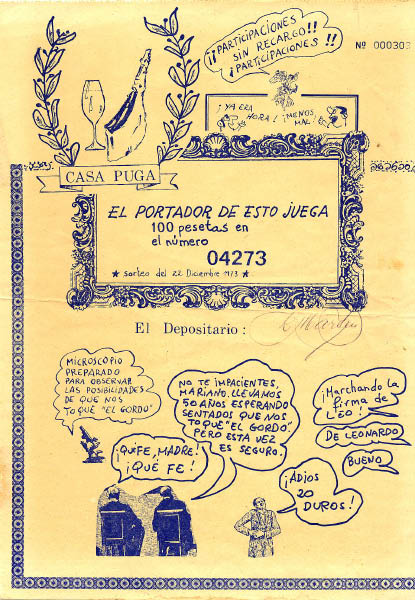 ¡¡PARTICIPACIONES
SIN RECARGO!!
¡PARTICIPACIONES!!
Nº 000303
¡YA ERA
HORA!
¡MENOS
MAL!
CASA PUGA
EL PORTADOR DE ESTO JUEGA
100 pesetas en
el número
04273
★ sorteo del 22 Diciembre 1973 ★
El Depositario:
MICROSCOPIO
PREPARADO
PARA OBSERVAR
LAS POSIBILIDADES
DE QUE NOS
TOQUE "EL GORDO"
NO TE IMPACIENTES,
MARIANO, LLEVAMOS
50 AÑOS ESPERANDO
SENTADOS QUE NOS
TOQUE "EL GORDO".
PERO ESTA VEZ
ES SEGURO.
¡Marchando la
firma de
LEO!
DE LEONARDO
BUENO
¡QUÉ FE, MADRE!
¡QUÉ FE!
¡ADIOS
20
DUROS!